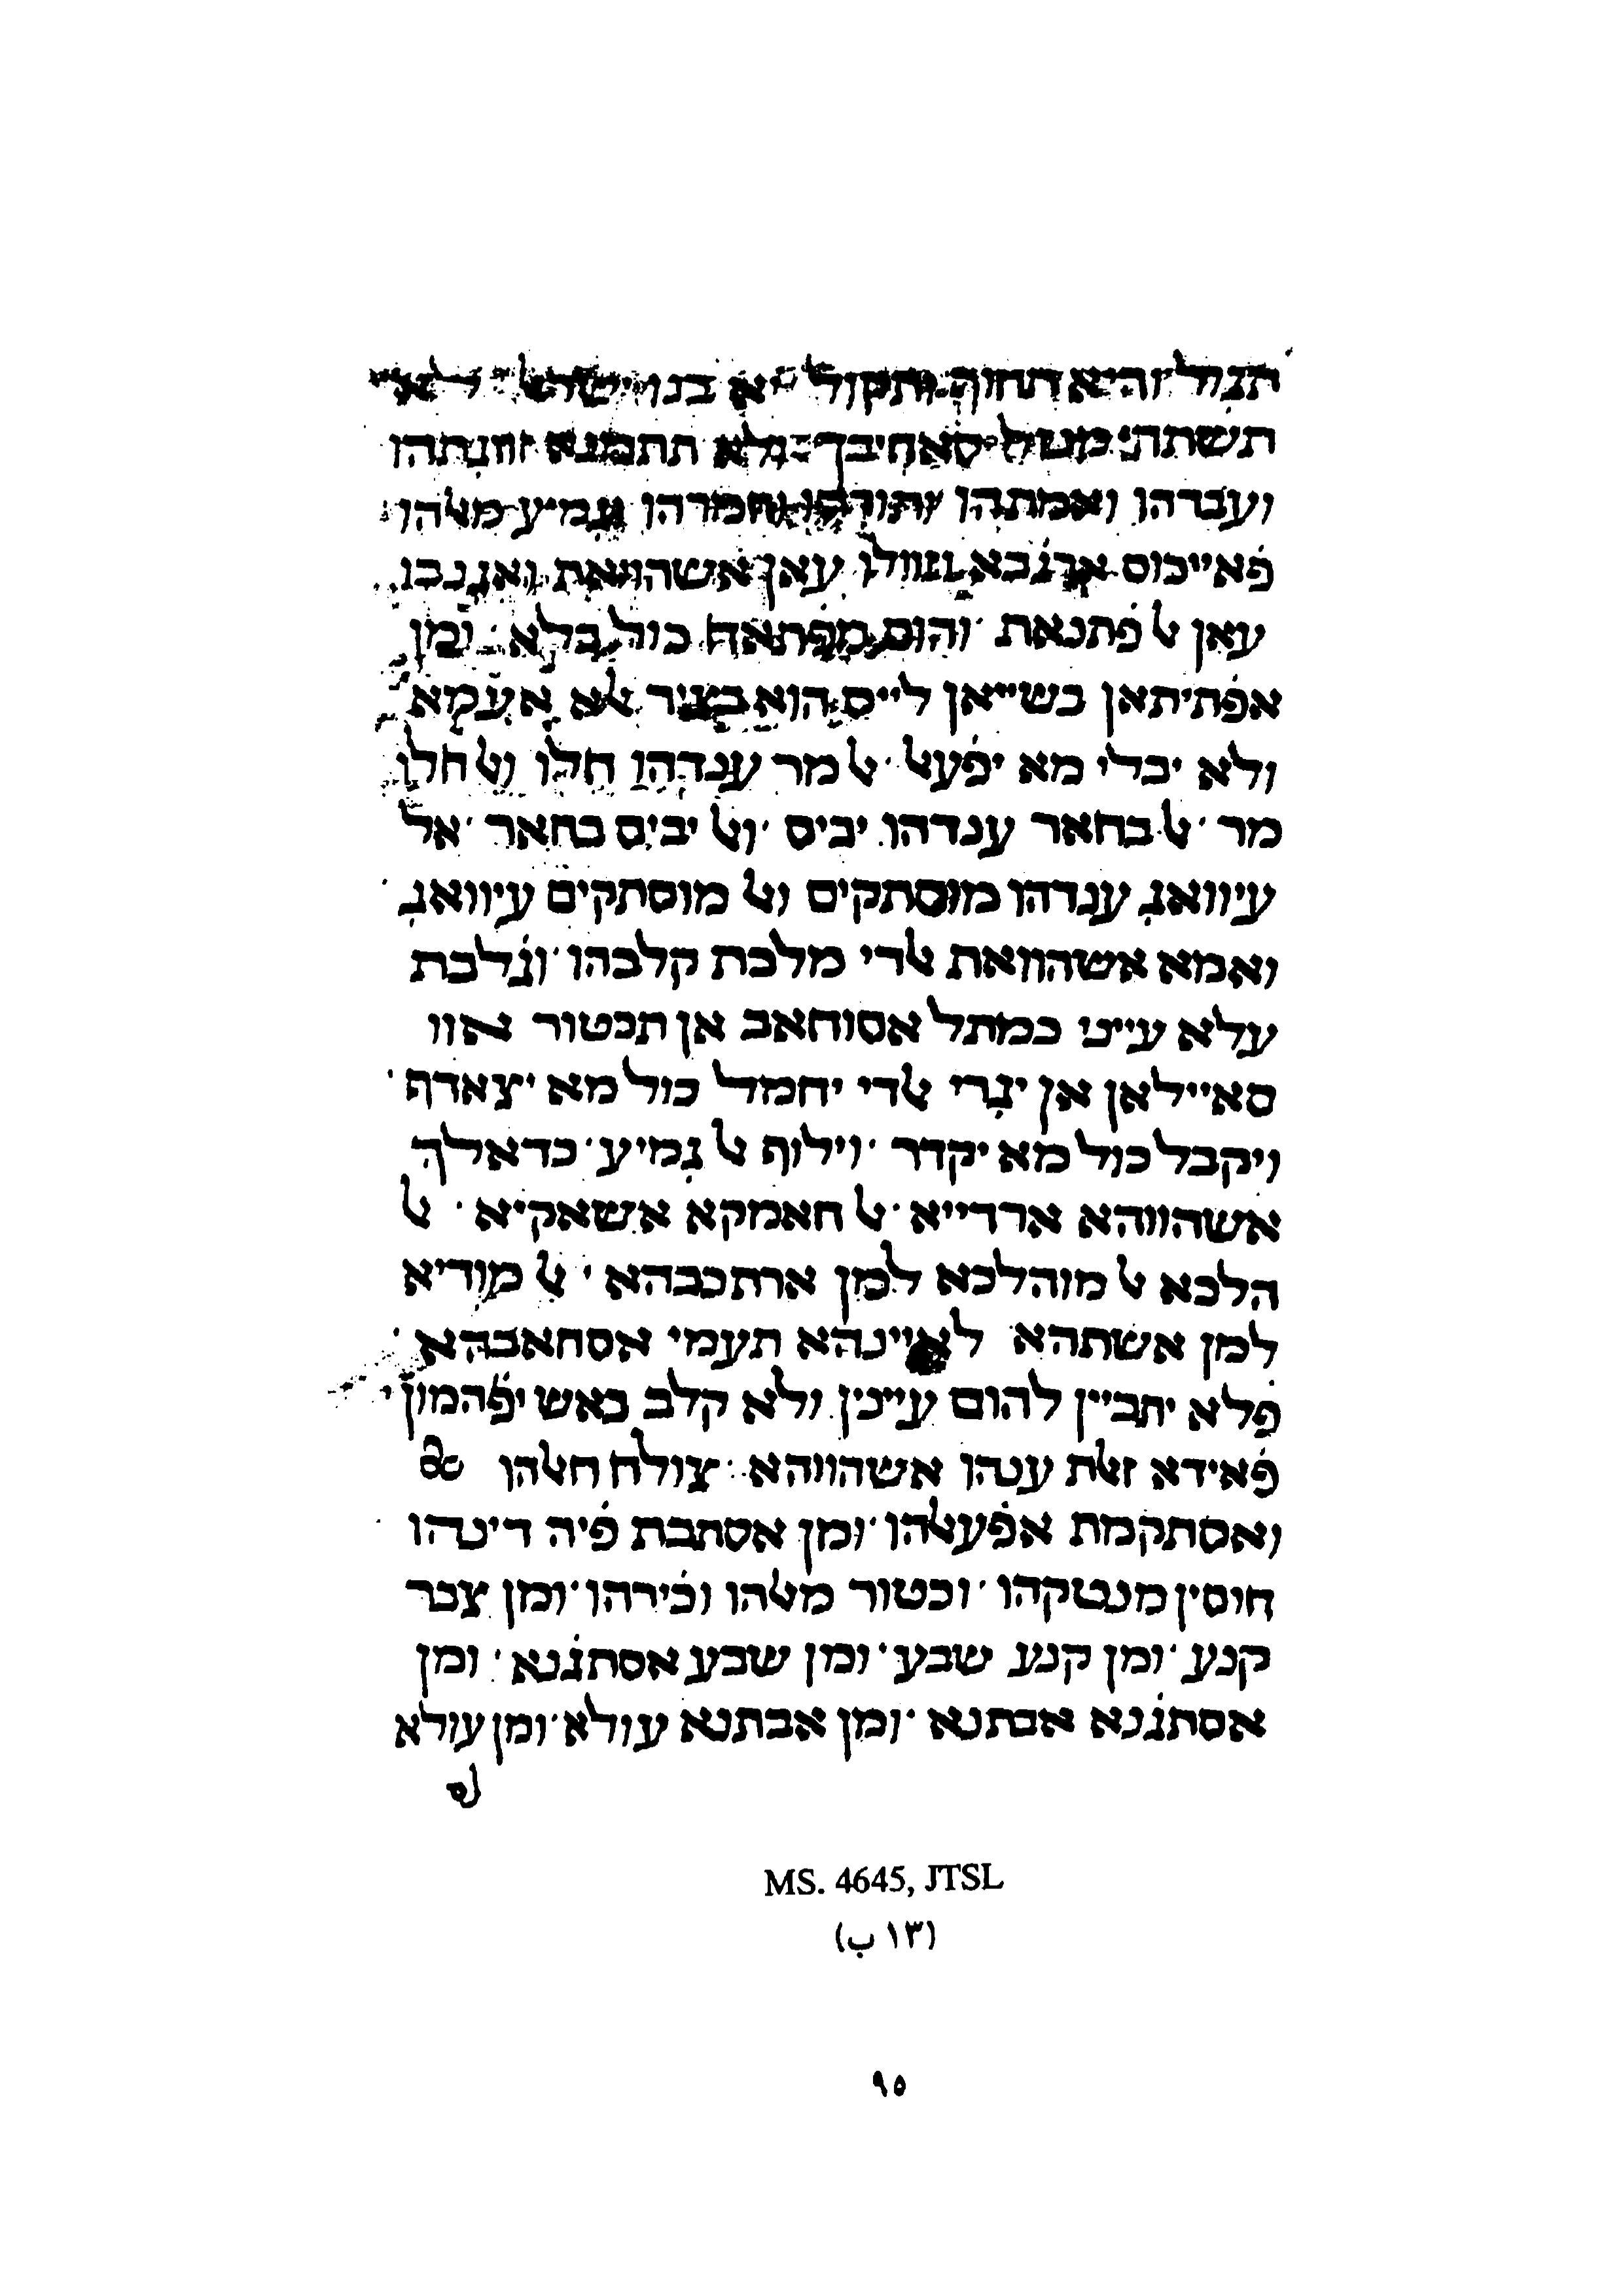 תנזל והיא תחוך ותקול יא בנו ישראל לא
תשתהי מאל צאחיבך ולא תתמנא זוונתהו
ועבדהו ואמתהו ותורהו וחמרהו וגמיע מאלהו
פׄאייכוס ארגׄבא וזוולו עאן אשהוואת ואגנבו
עאן אלפׄתנאת ׳ והום מפׄתאח כול בלא ׳ ומן
אפׄתיתאן בשייאן לייס הוא בציר אלא אעמא
ולא יבלי מא יפׄעל ׳ אלמר ענדהו חלו ואלחלו
מר ׳ אלבחאר ענדהו יביס ׳ ואליבים בחאר ׳ אל
עיוואגׄ ענדהו מוסתקים ואלמוסתקים עיוואגׄ ׳
ואמא אשהוואת אלדי מלכת קלבהו ׳ וגׄלבת
עלא עייני כמתל אסוחאב אן תכטור או
סאיילאן אן יגׄרי אלדי יחמל כול מא יצאדף ׳
ויקבל כול מא יקדר ׳ וילוף אלגׄמיע ׳ כדאלך
אשהווהא ארדייא ׳ אלחאמקא אשאקיא ׳ אל
הלכא אלמוהלכא למן ארתכבהא ׳ אלמודיא
למן אשתהא לאיינהא תעמי אסחאבהא ׳
פׄלא יתביין להום עיינין ולא קלב באש יפׄהמון ׳
פׄאידא זאלת ענהו אשהווהא ׳ צולח חאלהו
ואסתקמת אפׄעאלהו ׳ ומן אסתבת פׄיה דינהו ׳
חוסין מנטקהו ׳ וכטור מאלהו וכׄירהו ׳ ומן צבר
קנע ׳ ומן קנע שבע ׳ ומן שבע אסתגׄנא ׳ ומן
אסתגׄנא אבתנא ׳ ומן אבתנא עולא ׳ ומן עולא
MS. 4645, JTSL
(١٣ب)
٩٥